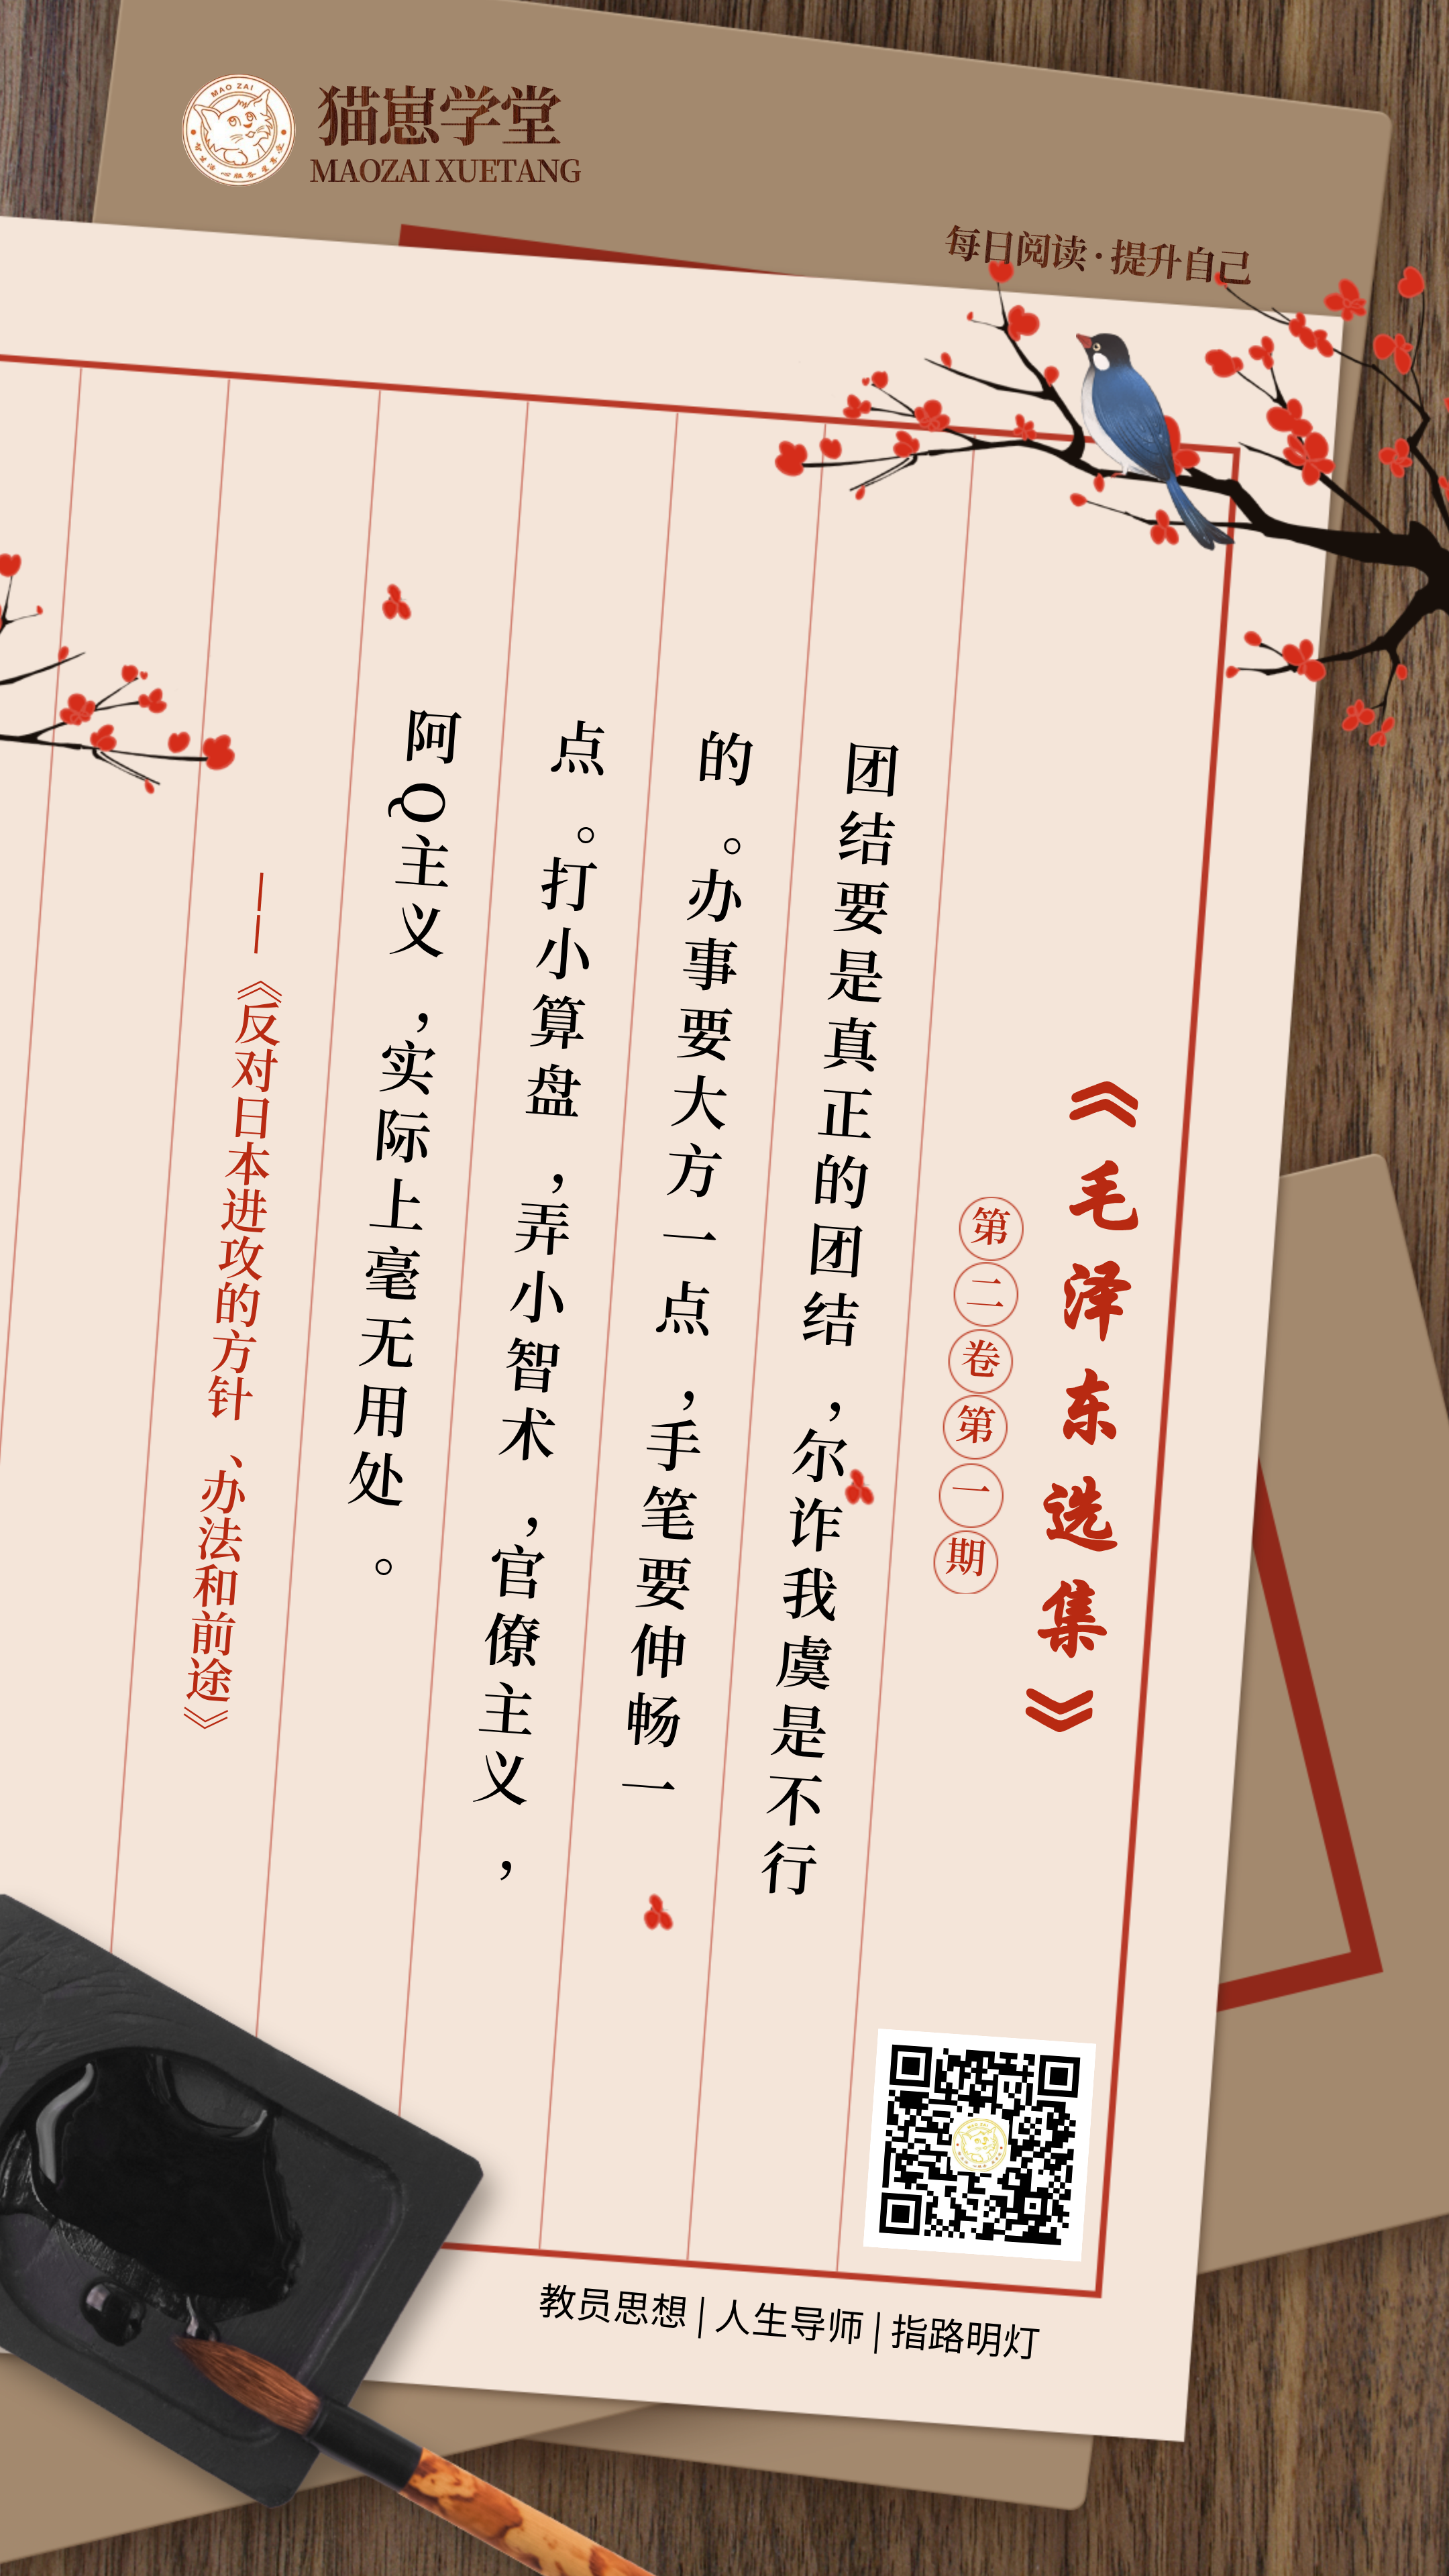 MAO ZAI
猫崽学堂
MAOZAI XUETANG
每日阅读·提升自己
《毛泽东选集》
第二卷第一期
团结要是真正的团结，尔诈我虞是不行
的。办事要大方一点，手笔要伸畅一
点。打小算盘，弄小智术，官僚主义，
阿Q主义，实际上毫无用处。
——《反对日本进攻的方针、办法和前途》
教员思想|人生导师|指路明灯